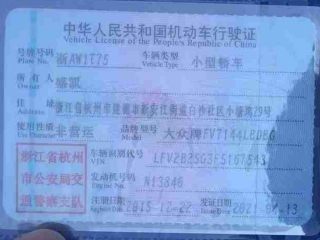 中华人民共和国机动车行驶证
Vehicle License of the People's Republic of China
号牌号码 浙AW1T75 车辆类型 小型轿车
Plate No. Vehicle Type
所有人
Owner
住址 浙江省杭州市建德市新安江街道白沙社区小 29号
Address
使用性质 非营运 品牌型号 大众牌FV7144LBDBG
Use Character Model
浙江省杭州市公安局交通警察支队
车辆识别代号 LFV2B25G3F5167543
VIN
发动机号码 N13846
Engine No.
注册日期 2015-12-22 发证日期 2021-0 -13
Register Date Issue Date